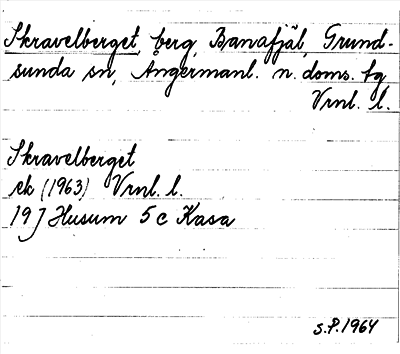 Skravelberget, berg, Banafjäl, Grund-
sunda sn, Ångermanl. n. doms. fg,
Vrnl. l.
Skravelberget
ek (1963) Vrnl. l.
19 J Husum 5 c Kasa
S.P. 1964